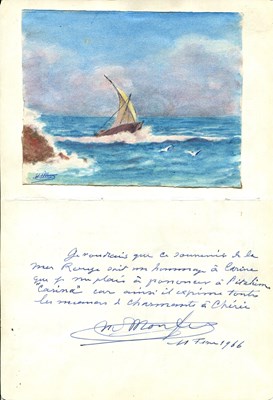 Je voudrais que ce souvenir de la
mer Rouge soit un hommage à Carine
que je me plais à prononcer à l'italienne
"Carina" car ainsi il exprime toutes
les nuances de Charmante à Chérie
11 Fev 1966